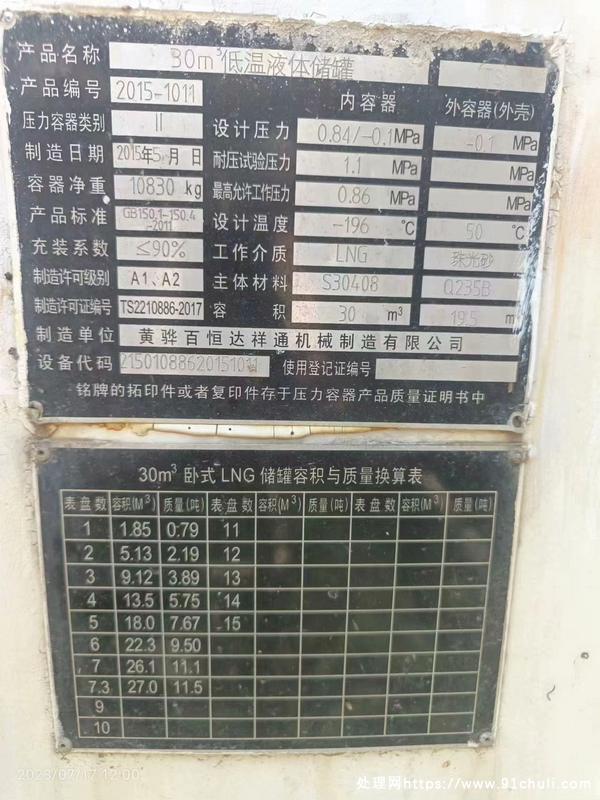 产品名称 30m³低温液体储罐
产品编号 2015-1011 内容器 外容器(外壳)
压力容器类别 II 设计压力 0.84/-0.1 MPa -0.1 MPa
制造日期 2015年5月 日 耐压试验压力 1.1 MPa MPa
容器净重 10830 kg 最高允许工作压力 0.86 MPa MPa
产品标准 GB150.1-150.4-2011 设计温度 -196 ℃ 50 ℃
充装系数 ≤90% 工作介质 LNG 珠光砂
制造许可级别 A1、A2 主体材料 S30408 Q235B
制造许可证编号 TS2210886-2017 容积 30 m³ 19.5 m
制造单位 黄骅百恒达祥通机械制造有限公司
设备代码 使用登记证编号
铭牌的拓印件或者复印件存于压力容器产品质量证明书中
30m³ 卧式 LNG 储罐容积与质量换算表
表盘数 容积(M³) 质量(吨) 表盘数 容积(M³) 质量(吨) 表盘数 容积(M³) 质量(吨)
1 1.85 0.79 11
2 5.13 2.19 12
3 9.12 3.89 13
4 13.5 5.75 14
5 18.0 7.67 15
6 22.3 9.50
7 26.1 11.1
7.3 27.0 11.5
9
10
2023/07/17 12:00
处理网https://www.91chuli.com